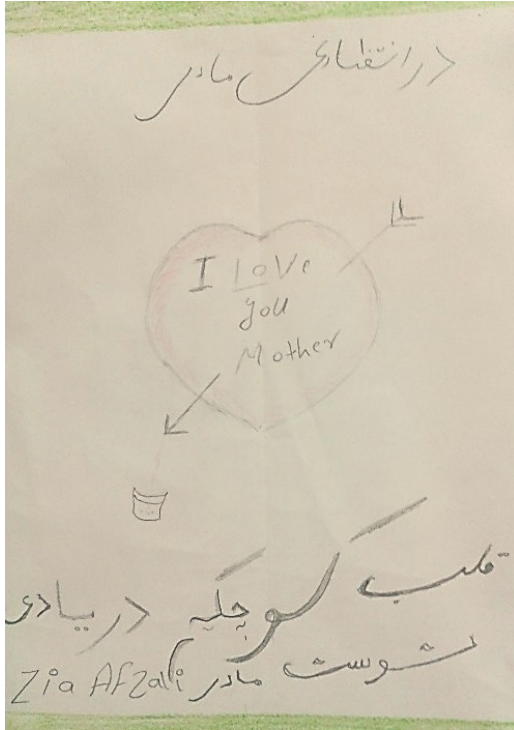 در انتظاری مادر
I Love
you
Mother
قلب کوچکه در یادی
توست مادر Zia Afzali